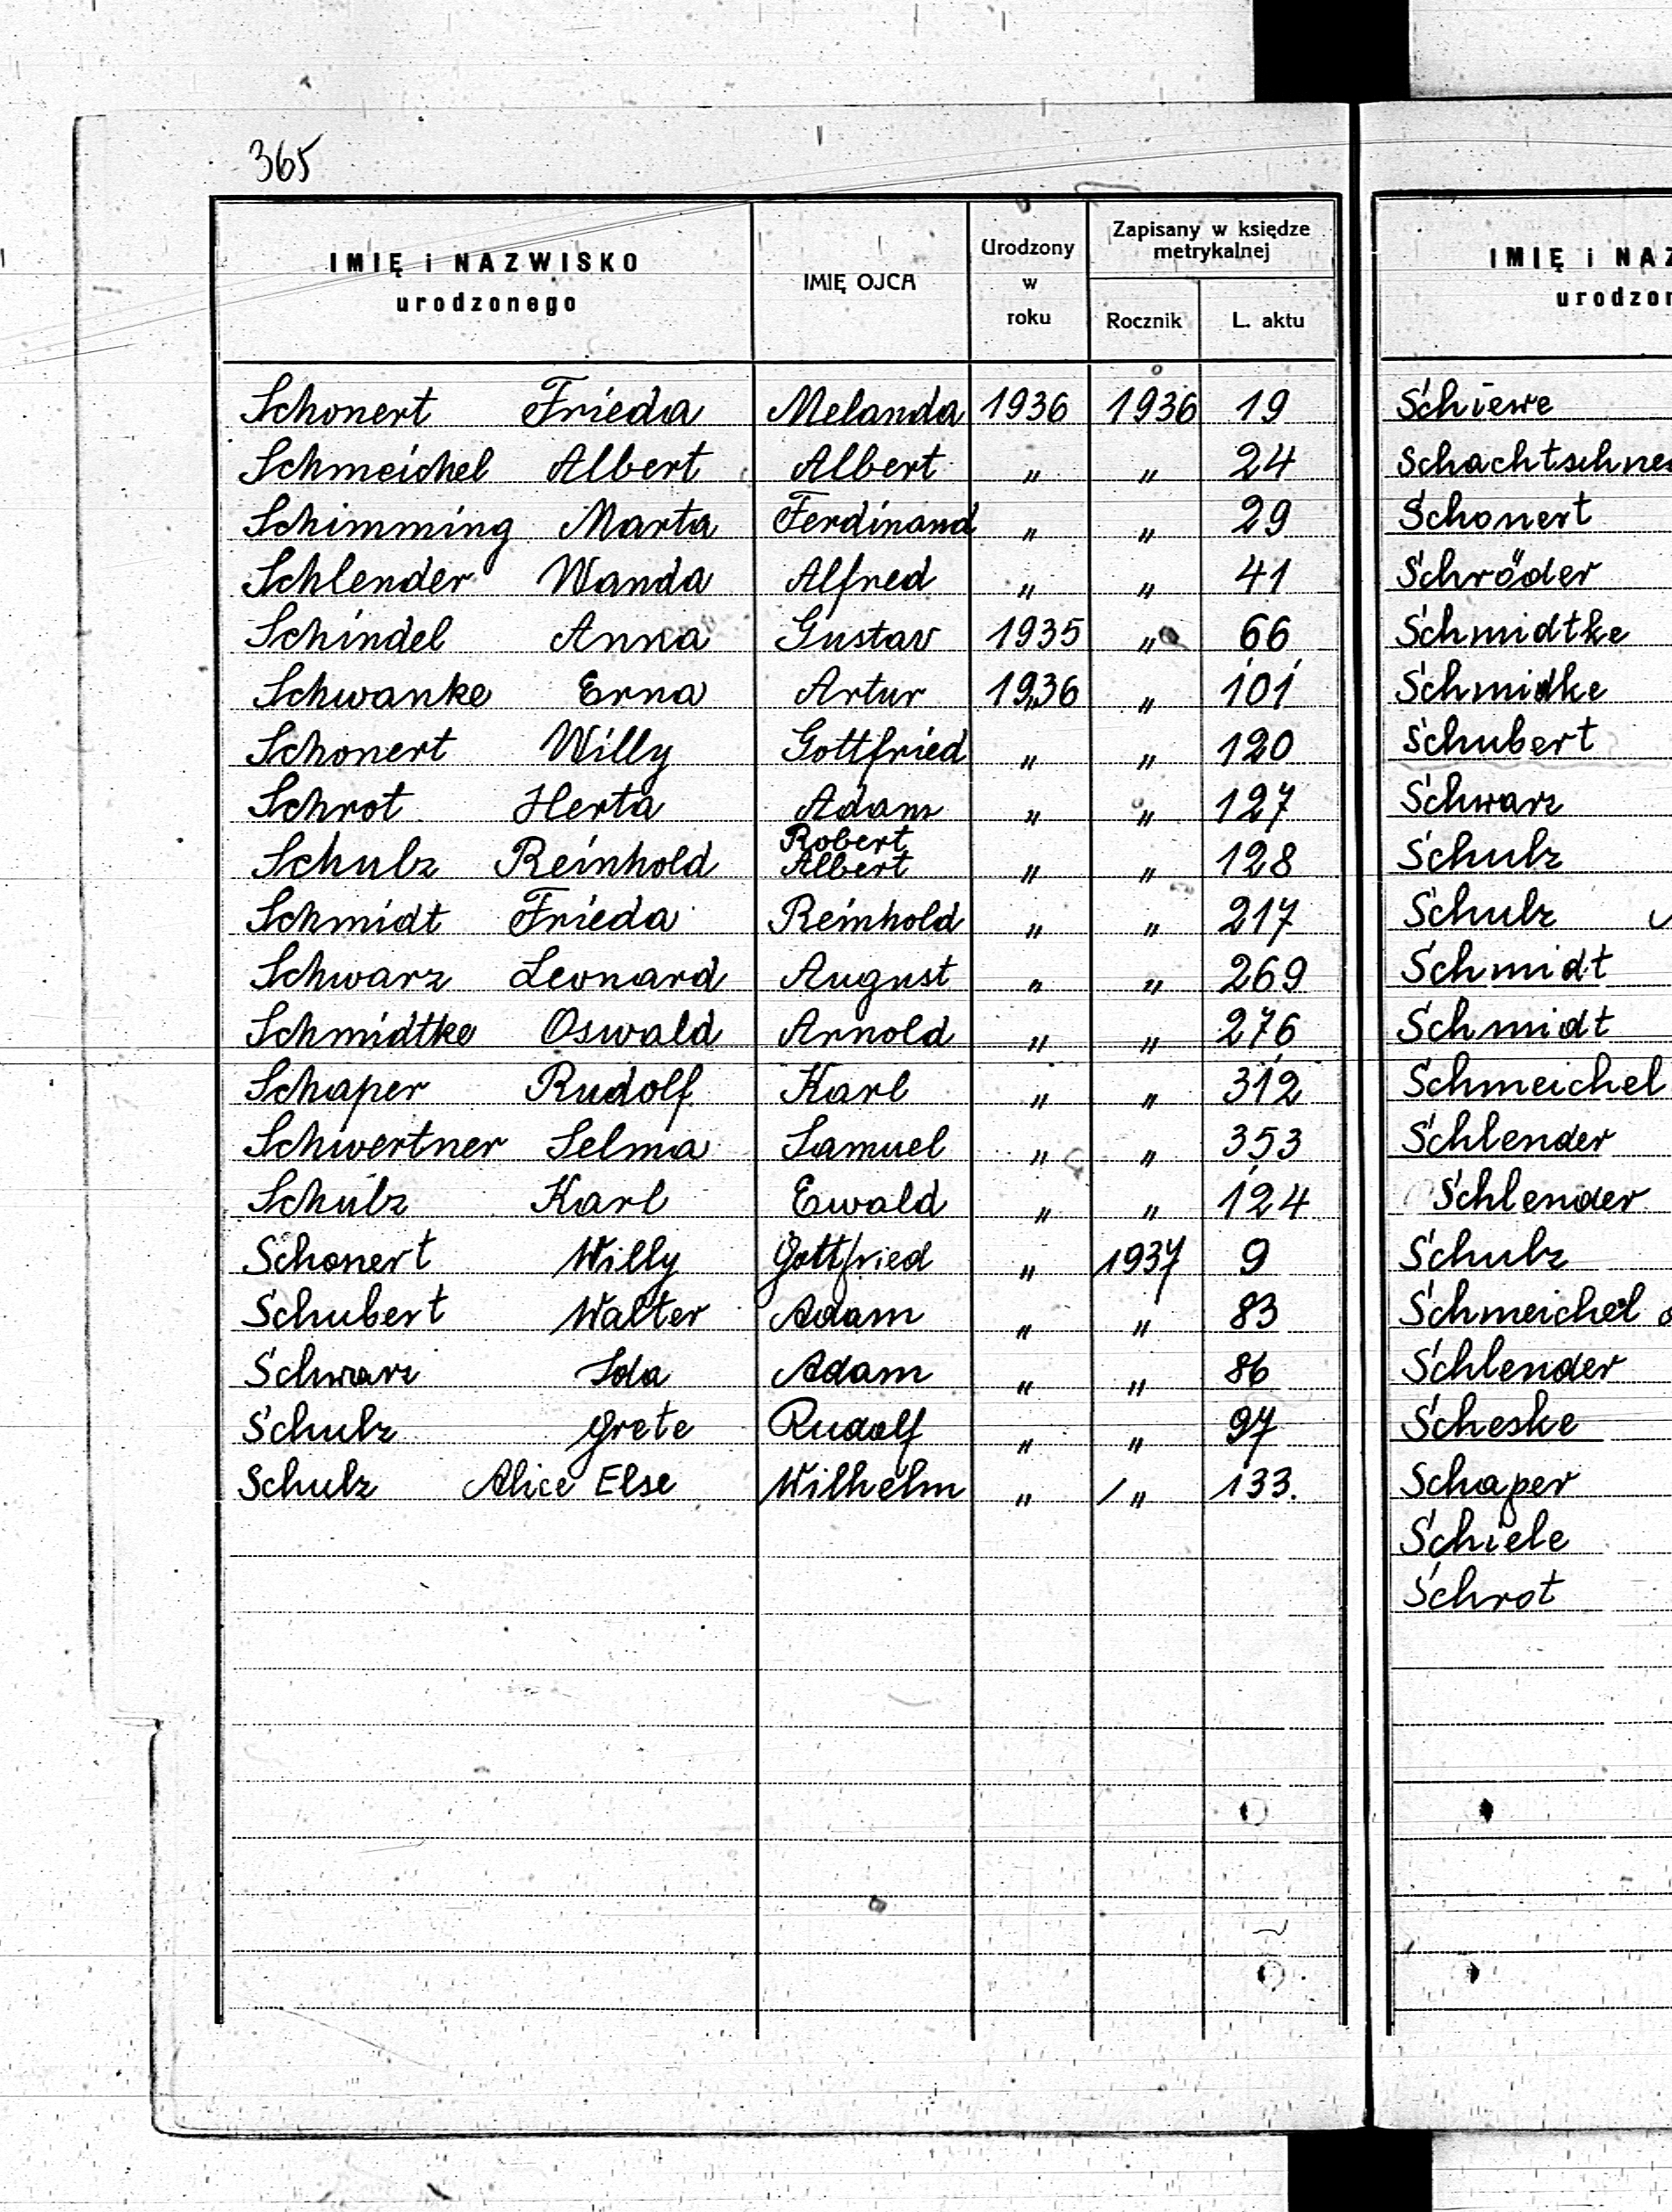 365
IMIĘ i NAZWISKO
urodzonego
IMIĘ OJCA
Urodzony
w
roku
Zapisany w księdze
metrykalnej
Rocznik L. aktu
Schonert Frieda Melanda 1936 1936 19
Schmeichel Albert Albert " " 24
Schimming Marta Ferdinand " " 29
Schlender Wanda Alfred " " 41
Schindel Anna Gustav 1935 " 66
Schwanke Erna Artur 1936 " 101
Schonert Willy Gottfried " " 120
Schrot Herta Adam " " 127
Schulz Reinhold Robert Albert " " 128
Schmidt Frieda Reinhold " " 217
Schwarz Leonard August " " 269
Schmidtke Oswald Arnold " " 276
Schaper Rudolf Karl " " 312
Schwertner Selma Samuel " " 353
Schulz Karl Ewald " " 124
Schonert Willy Gottfried " 1937 9
Schubert Walter Adam " " 83
Schwarz Ida Adam " " 86
Schulz Grete Rudolf " " 97
Schulz Alice Else Wilhelm " " 133.
IMIĘ i NAZ
urodzon
Schiewe
Schachtschne
Schonert
Schröder
Schmidtke
Schmidke
Schubert
Schwarz
Schulz
Schulz
Schmidt
Schmidt
Schmeichel
Schlender
Schlender
Schulz
Schmeichel
Schlender
Scheske
Schaper
Schiele
Schrot